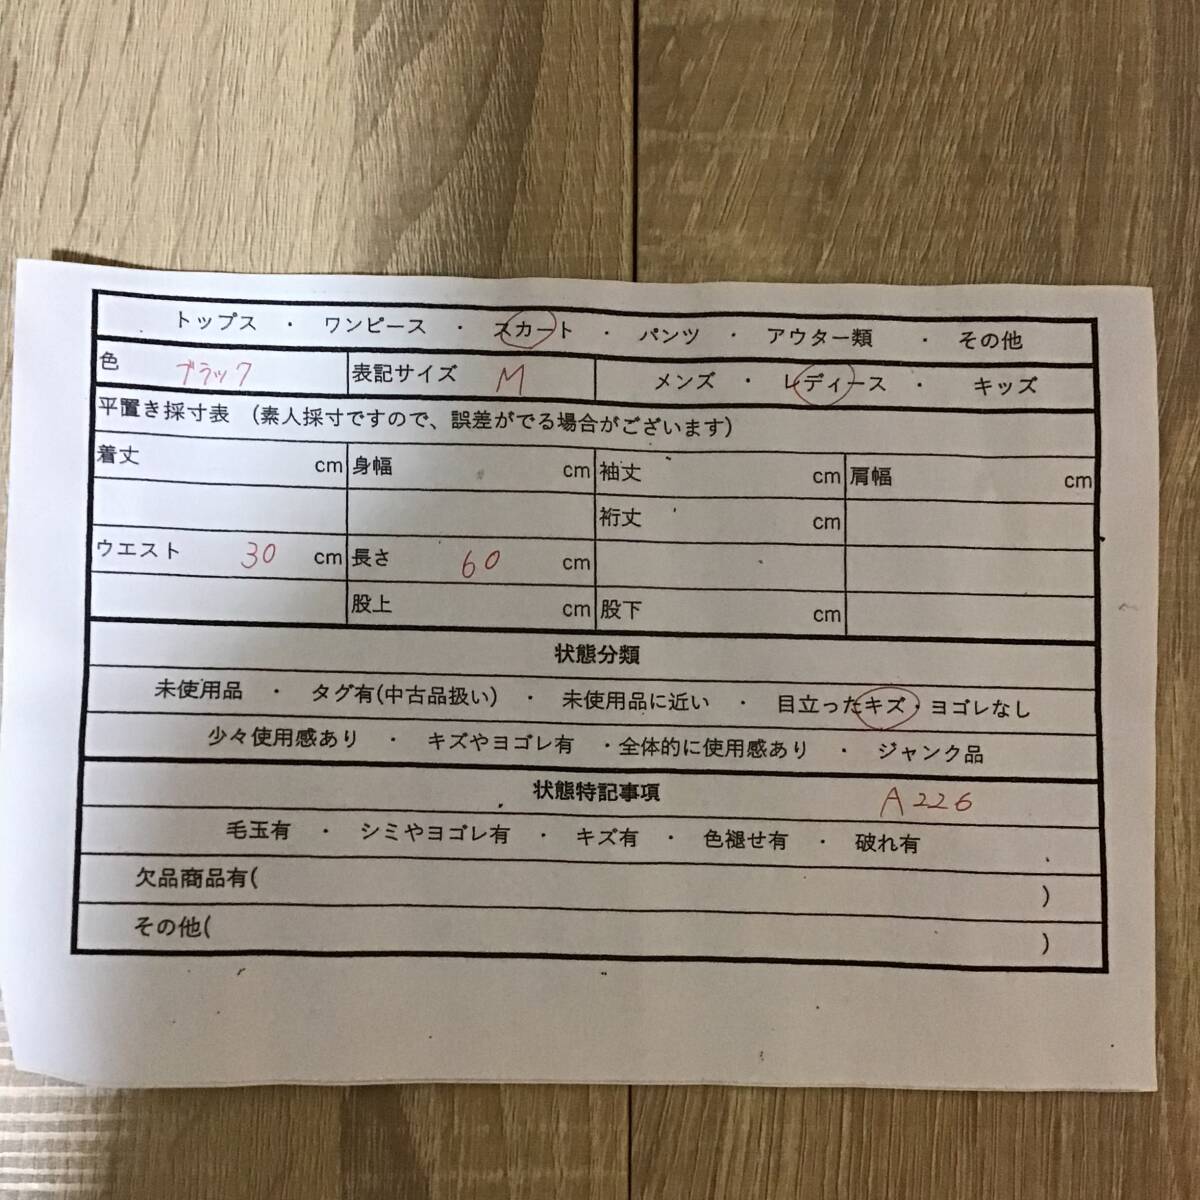 トップス ・ ワンピース ・ スカート ・ パンツ ・ アウター類 ・ その他
色 ブラック 表記サイズ M メンズ ・ レディース ・ キッズ
平置き採寸表 (素人採寸ですので、誤差がでる場合がございます)
着丈 cm 身幅 cm 袖丈 cm 肩幅 cm
裄丈 cm
ウエスト 30 cm 長さ 60 cm
股上 cm 股下 cm
状態分類
未使用品 ・ タグ有(中古品扱い) ・ 未使用品に近い ・ 目立ったキズ・ヨゴレなし
少々使用感あり ・ キズやヨゴレ有 ・全体的に使用感あり ・ ジャンク品
状態特記事項 A226
毛玉有 ・ シミやヨゴレ有 ・ キズ有 ・ 色褪せ有 ・ 破れ有
欠品商品有( )
その他( )